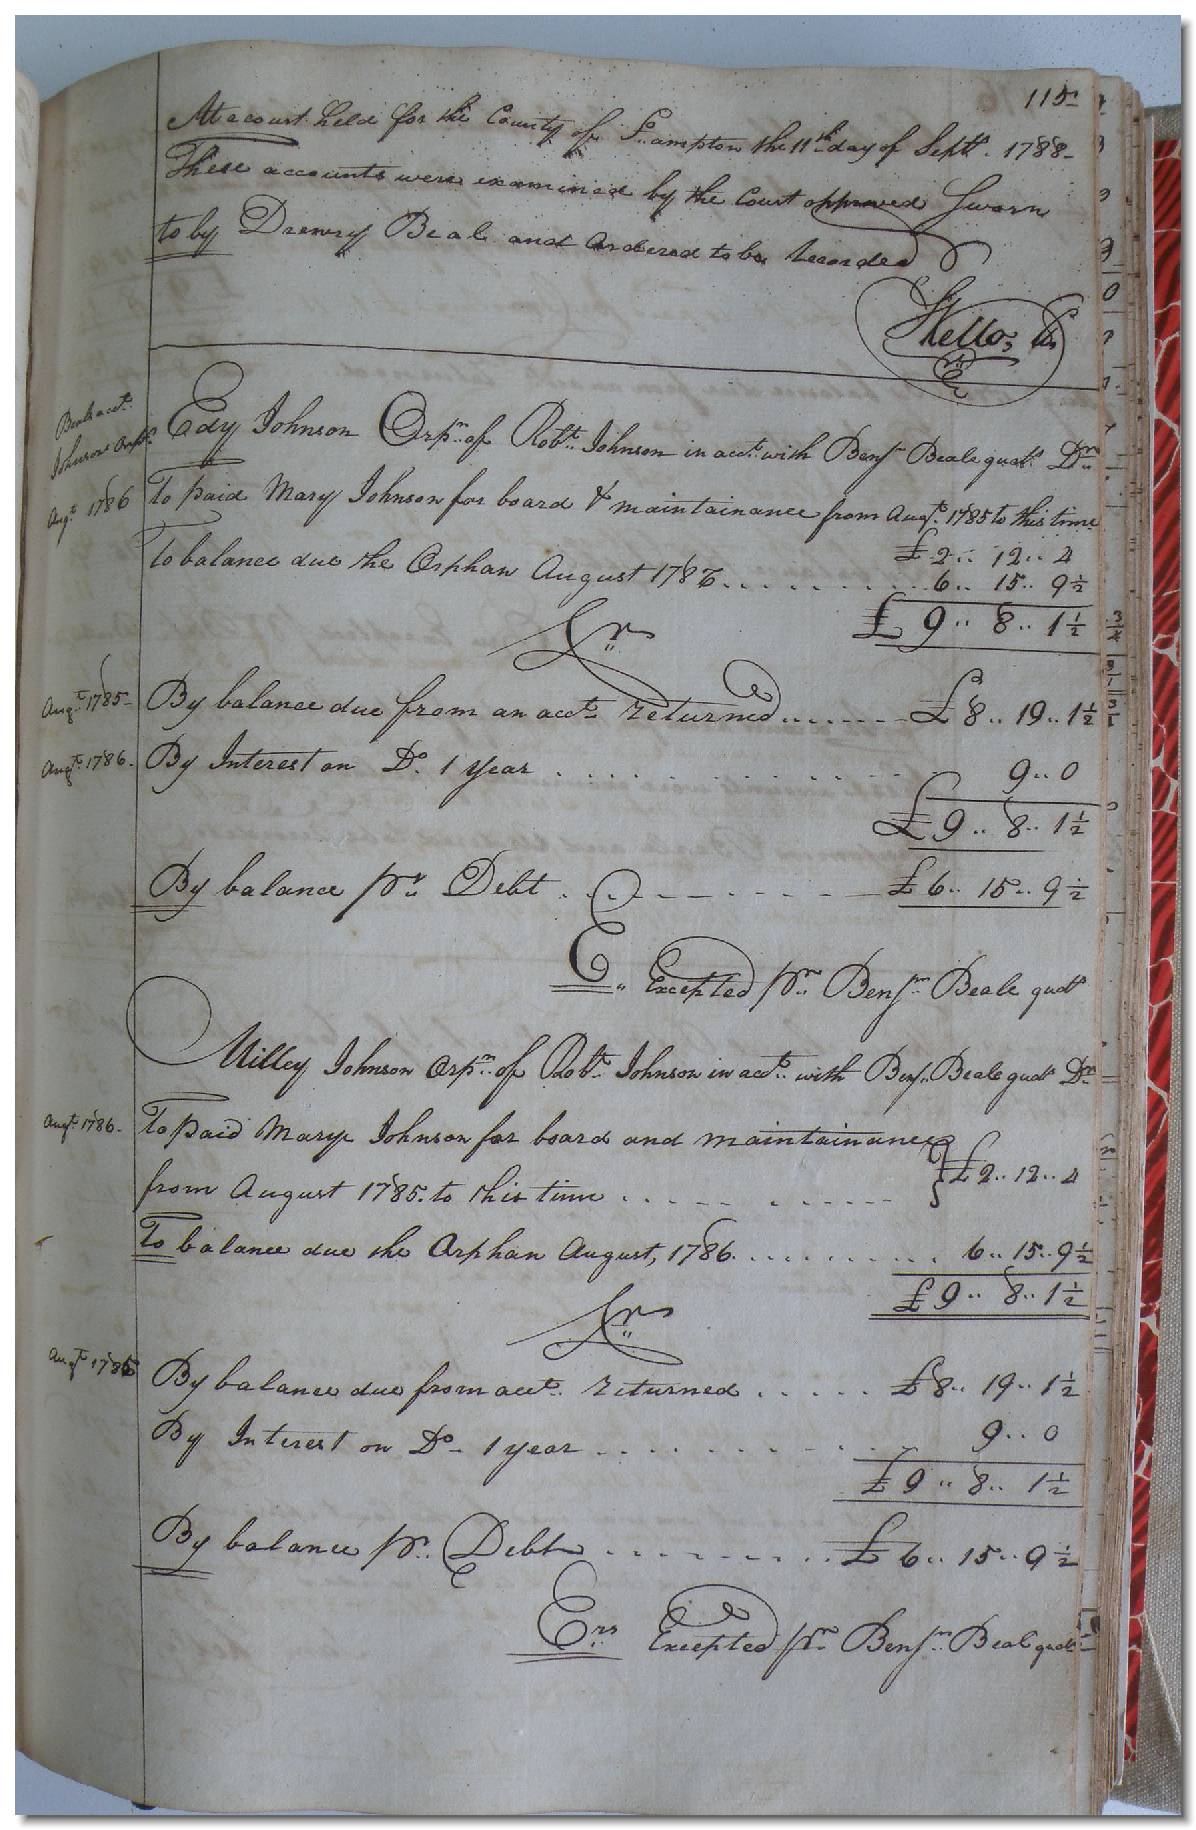 115
At a court held for the County of S.ampton the 11th day of Septr. 1788
These accounts were examined by the Court approved Sworn
to by Drewry Beal and Ordered to be Recorded
Beals acct.
Johnsons Orps.
Edy Johnson Orpn. of Robt. Johnson in acct. with Benjn. Beale guadn. Dr.
Augt. 1786 To paid Mary Johnson for board & maintainance from Augt. 1785 to this time
£2.. 12.. 4
To balance due the Orphan August 1786........ 6.. 15.. 9½
£ 9.. 8.. 1½
Cr.
Augt. 1785 By balance due from an acct. returned...... £8.. 19.. 1½
Augt. 1786. By Interest on Do. 1 year ........ 9.. 0
£9.. 8.. 1½
By balance pr. Debt ........ £6.. 15.. 9½
E.. Excepted pr. Benjn. Beale guadn.
Milley Johnson Orpn. of Robt. Johnson in acct. with Benjn. Beale guadn. Dr.
Augt. 1786. To paid Mary Johnson for board and maintainance
from August 1785. to this time ........ } £2.. 12.. 4
To balance due the Orphan August, 1786........ 6.. 15.. 9½
£9.. 8.. 1½
Cr.
Augt. 1785 By balance due from acct. returned ..... £8.. 19.. 1½
By Interest on Do 1 year ........ 9.. 0
£9.. 8.. 1½
By balance pr. Debt ........ £6.. 15.. 9½
Ers. Excepted pr. Benjn. Beal guadn.